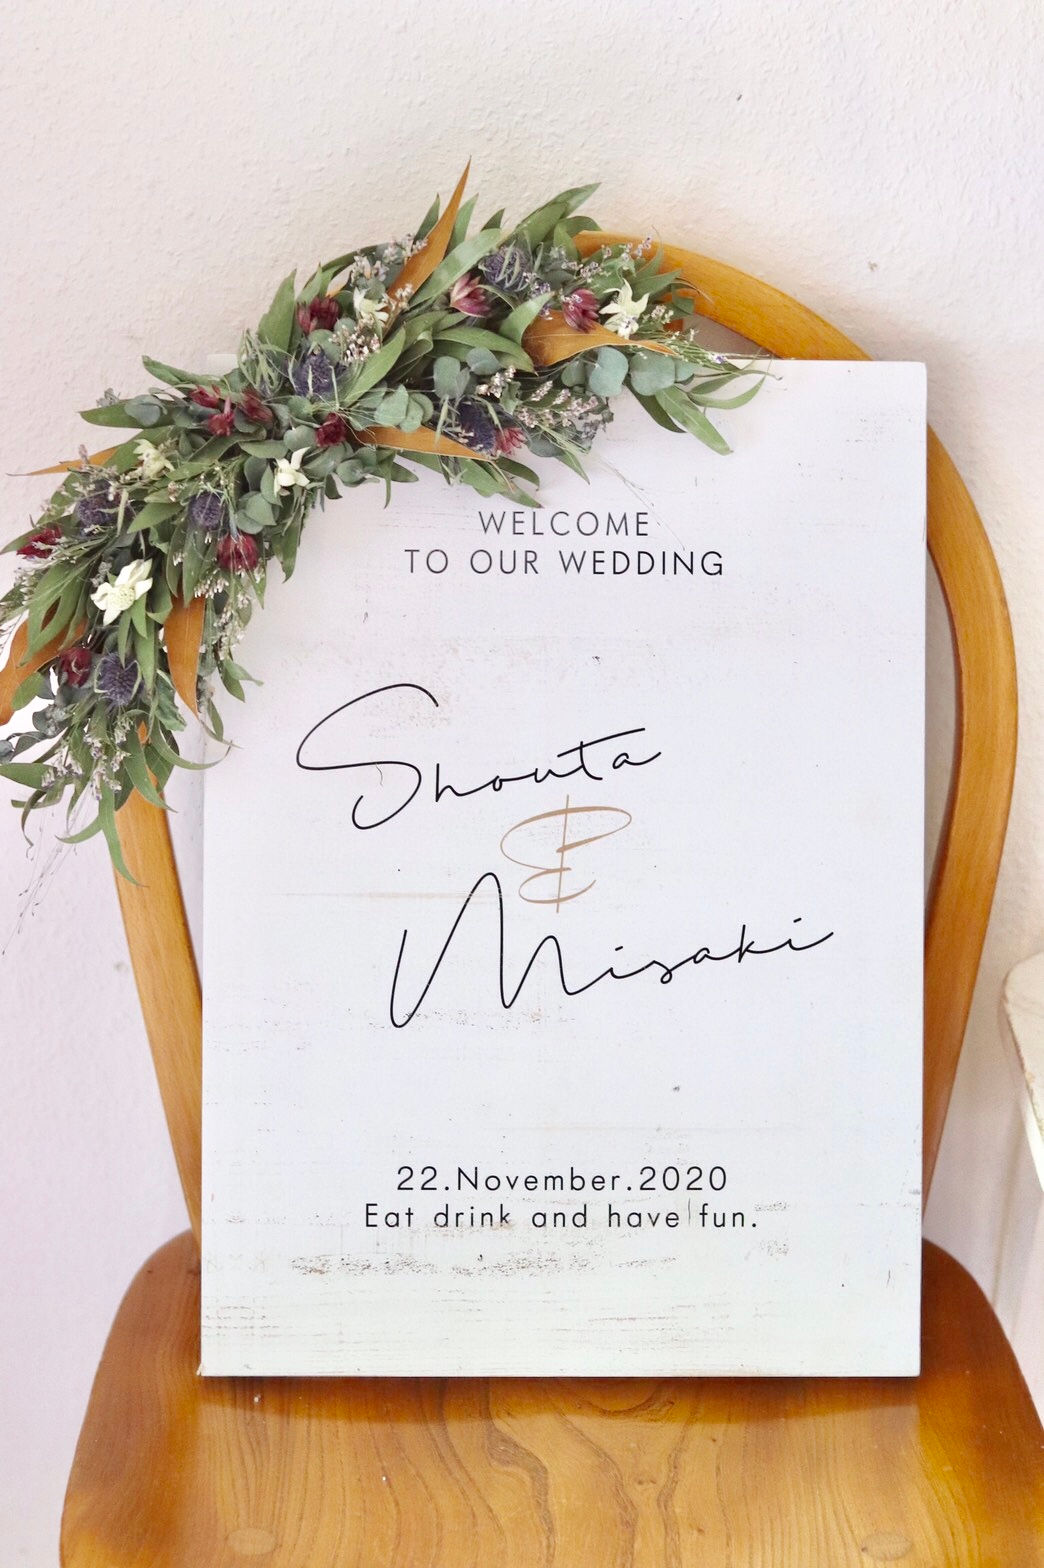 WELCOME
TO OUR WEDDING
Shouta
&
Misaki
22.November.2020
Eat drink and have fun.